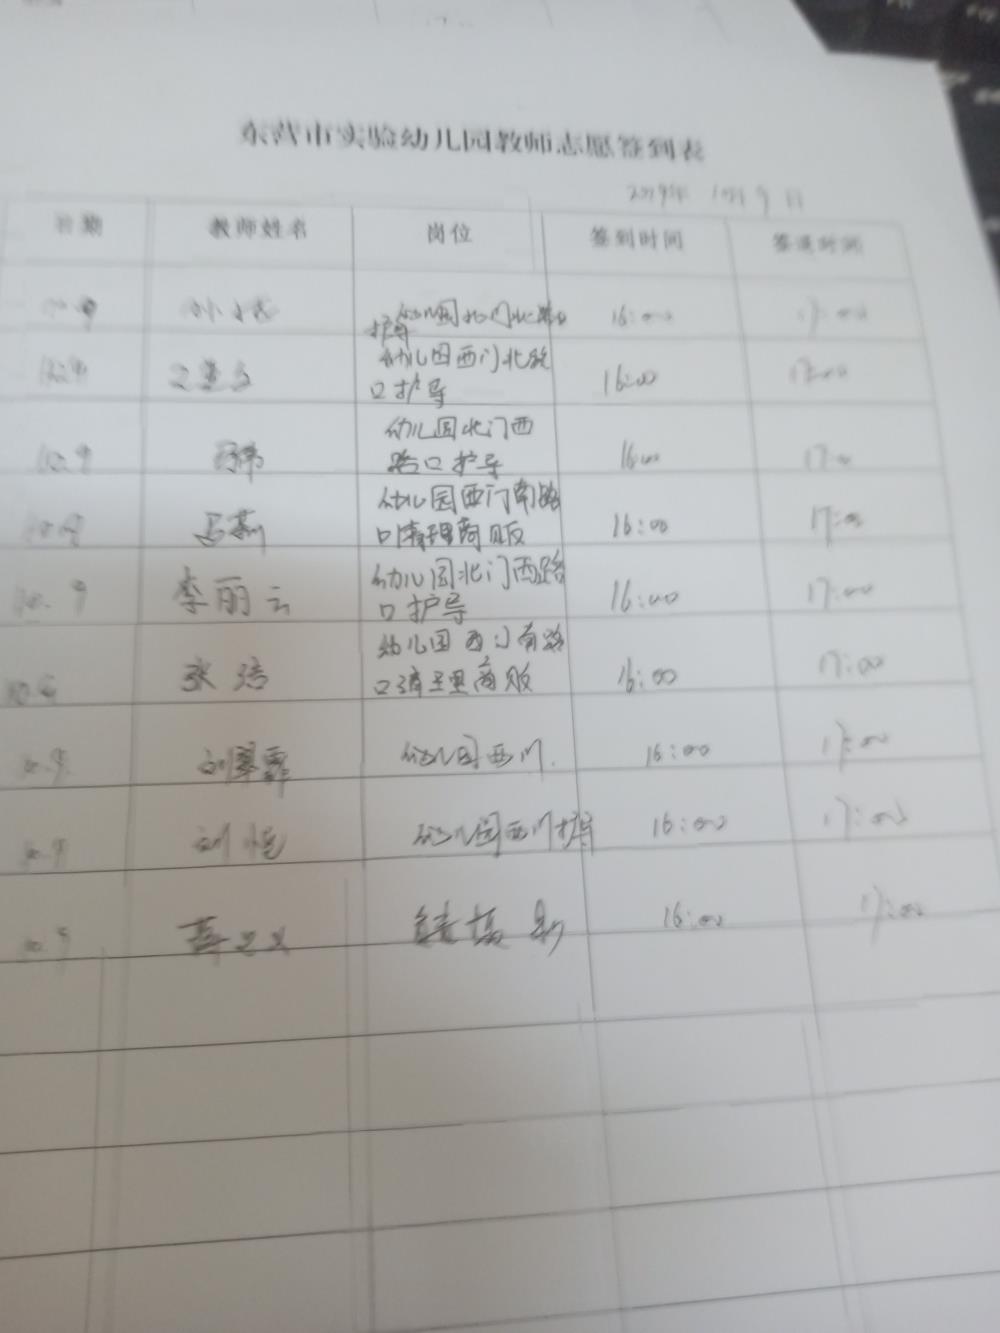 东营市实验幼儿园教师志愿签到表
2019年 10月9日
日期 教师姓名 岗位 签到时间 签退时间
幼儿园北门北路口
护导
16:00 17:00
10.9 幼儿园西门北路
口护导
16:00 17:00
10.9 幼儿园北门西
路口护导
16:00 17:00
10.9 马燕 幼儿园西门南路
口清理商贩
16:00 17:00
10.9 李丽云 幼儿园北门西路
口护导
16:00 17:00
张洁 幼儿园西门南路
口清理商贩
16:00 17:00
10.9 刘翠霞 幼儿园西门 16:00 17:00
10.9 刘 幼儿园西门护导 16:00 17:00
10.9 16:00 17:00